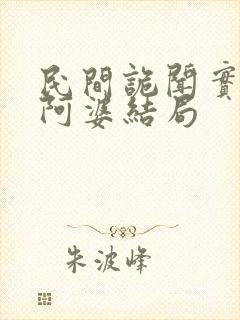 民間詭聞實
阿婆結局
朱波峰